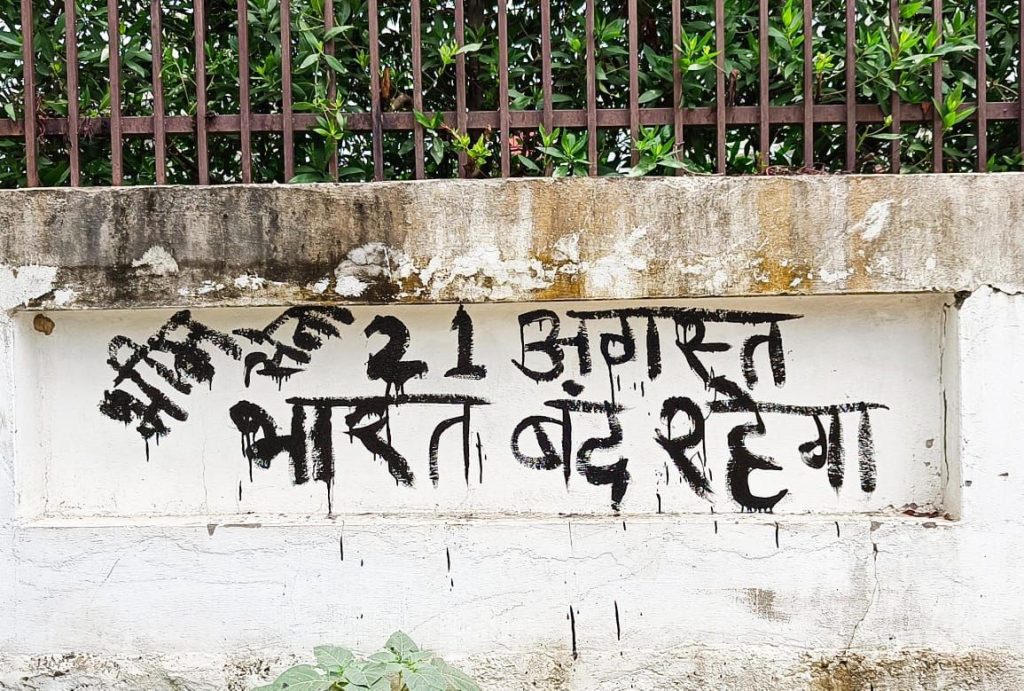 21 अगस्त
भारत बंद रहेगा